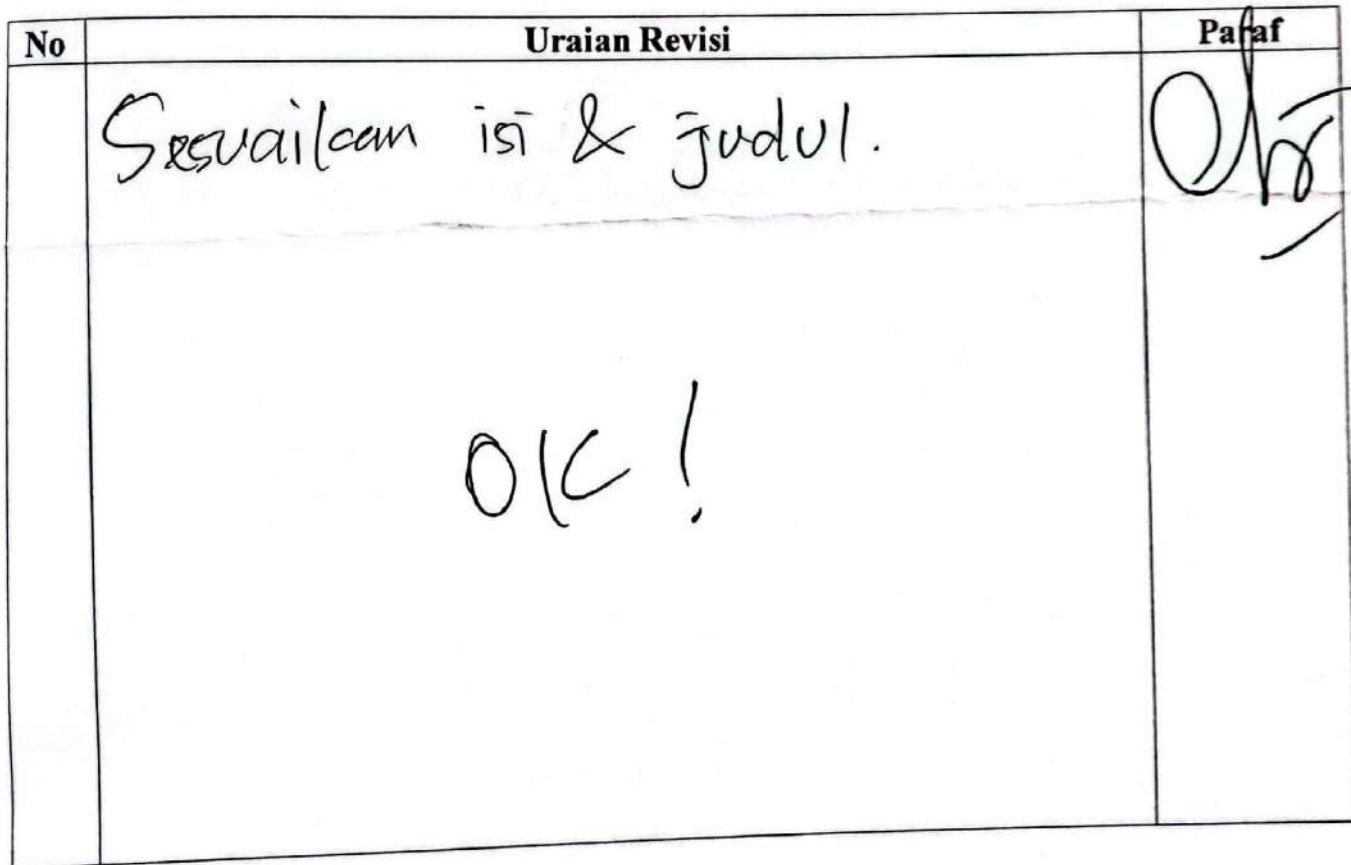 No Uraian Revisi Paraf
Sesuaikan isi & judul.
OK!